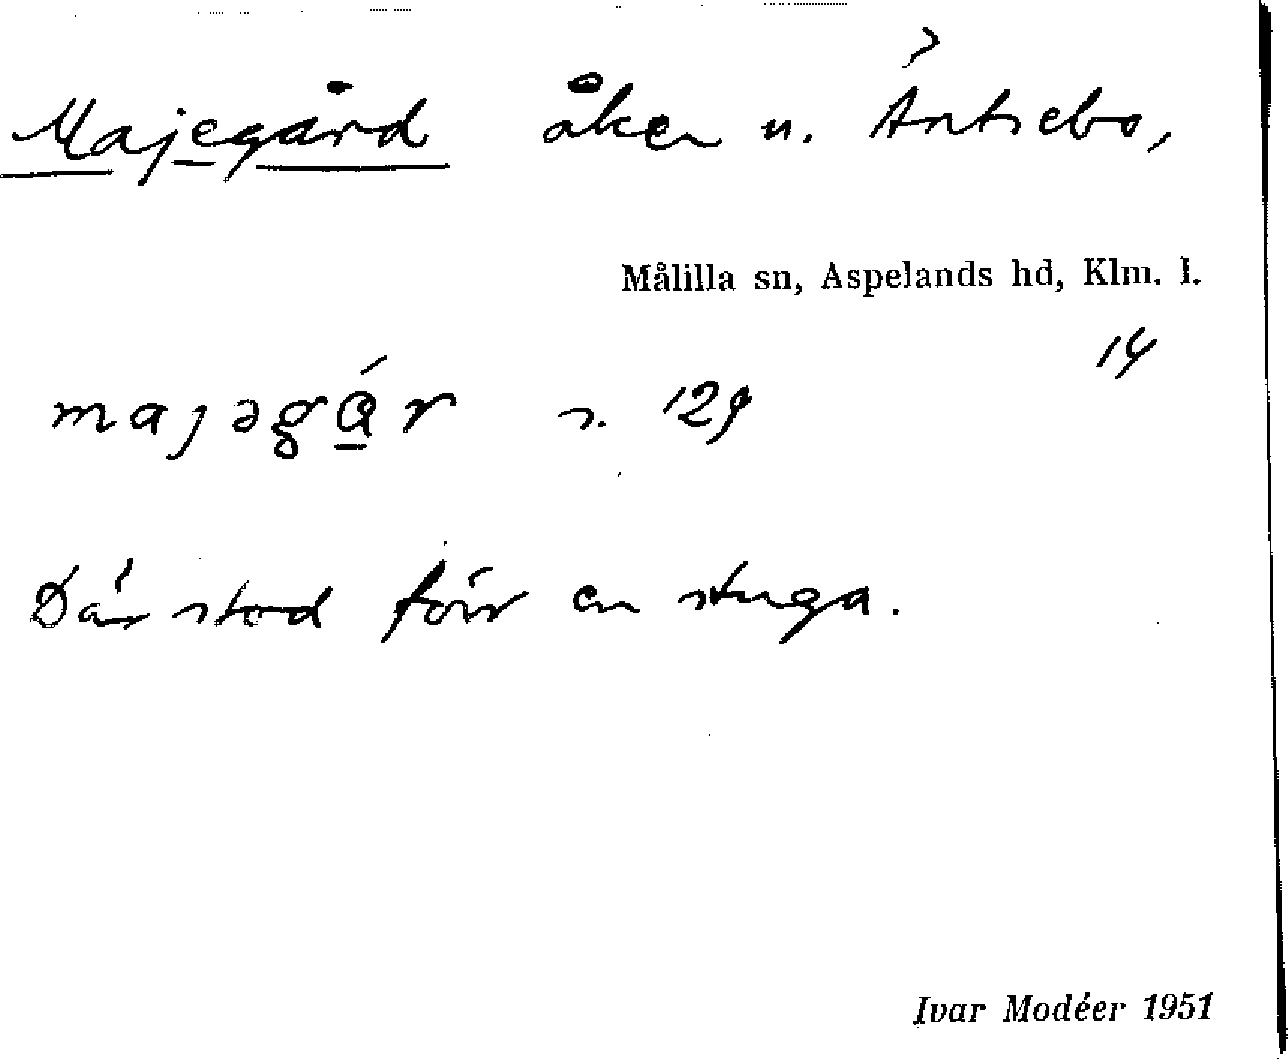 Majegård åker u. Äntsebo,
Målilla sn, Aspelands hd, Klm. l.
14
majəgår s. 129
Där stod förr en stuga.
Ivar Modéer 1951